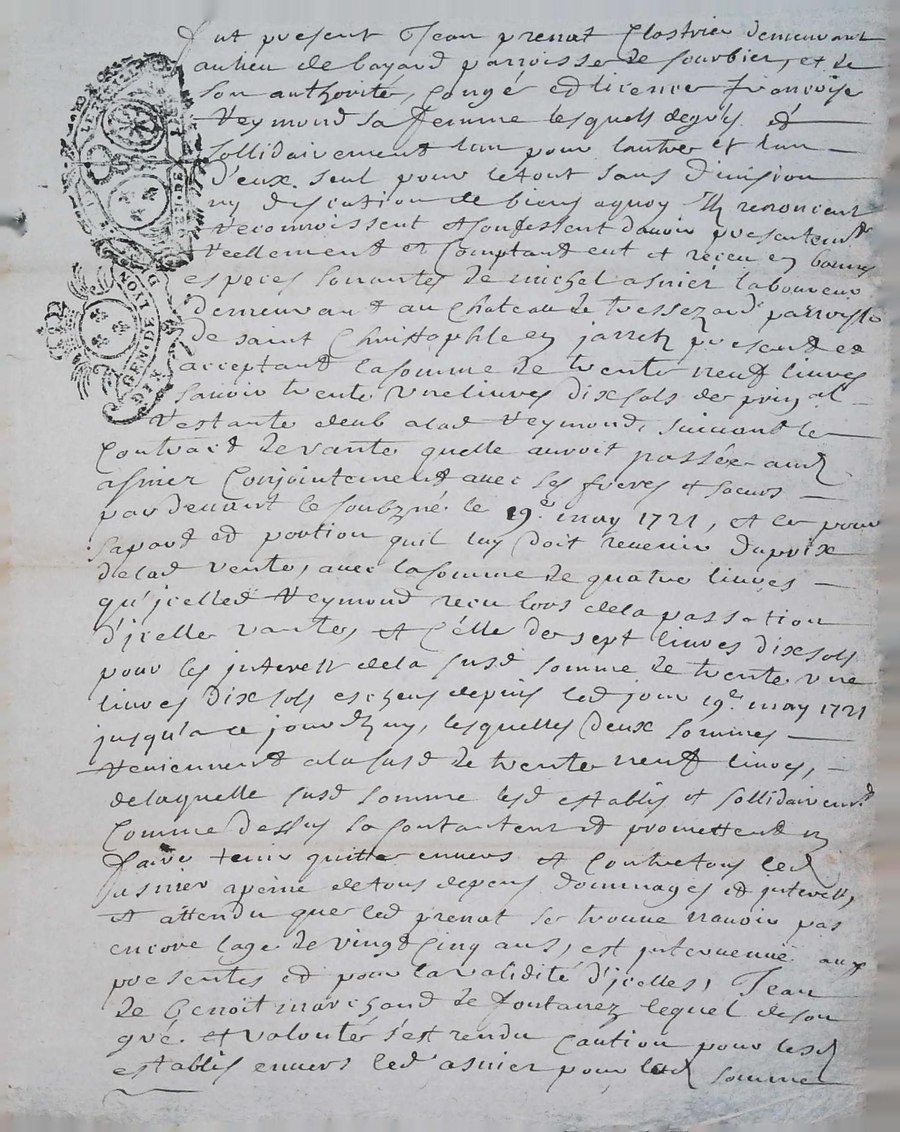 fut present Jean prenat Clostrier demeurant
au lieu de bayard parroisse de sourbier, et de
son authorité, congé et licence françoise
Reymond sa femme lesquels de gré et
sollidairement lun pour lautre et lun
d'eux seul pour le tout sans division
ny discution de biens aquoy Ils renoncent
reconnoissent et confessent davoir presentemt
reellement et comptant eut et receu en bonnes
especes sonantes de michel asnier laboureur
demeurant au chateau de parroisse
de saint Christophle en jarrets present et
acceptant la somme de trente neuf livres
savoir trente une livres dix sols de prinpal
restante deub a lad Reymond, suivant le
contract de vante quelle auroit passée aud
asnier conjointement avec ses freres et soeurs
par devant le soubzné le 19e may 1721, et ce pour
sa part et portion quil luy doit revenir du prix
de lad vente, avec la somme de quatre livres
qu'jcelled Reymond receu lors de la passation
d'jcelle vante, et celle de sept livres dix sols
pour les jnterest de la susd somme de trente une
livres dix sols escheus depuis led jour 19e may 1721
jusqu'a ce jourdhuy, lesquelles deux sommes
reviennent a la susd de trente neuf livres,
de laquelle susd somme lesd establis et sollidairemt
comme dessus se contantent et promettent en
faire tenir quitte envers et contre tous led
asnier a peine de tous depens dommages et jnterest,
et attendu que led prenat se trouve navoir pas
encore lage de vingt cinq ans, est jntervenue aux
presentes et pour la validité d'jcelles, Jean
de Benoit marchand de fontanez lequel de son
gré et volonté s'est rendu caution pour lesd
establis envers led asnier pour lad somme
GEN. DE LYON
DIX
D